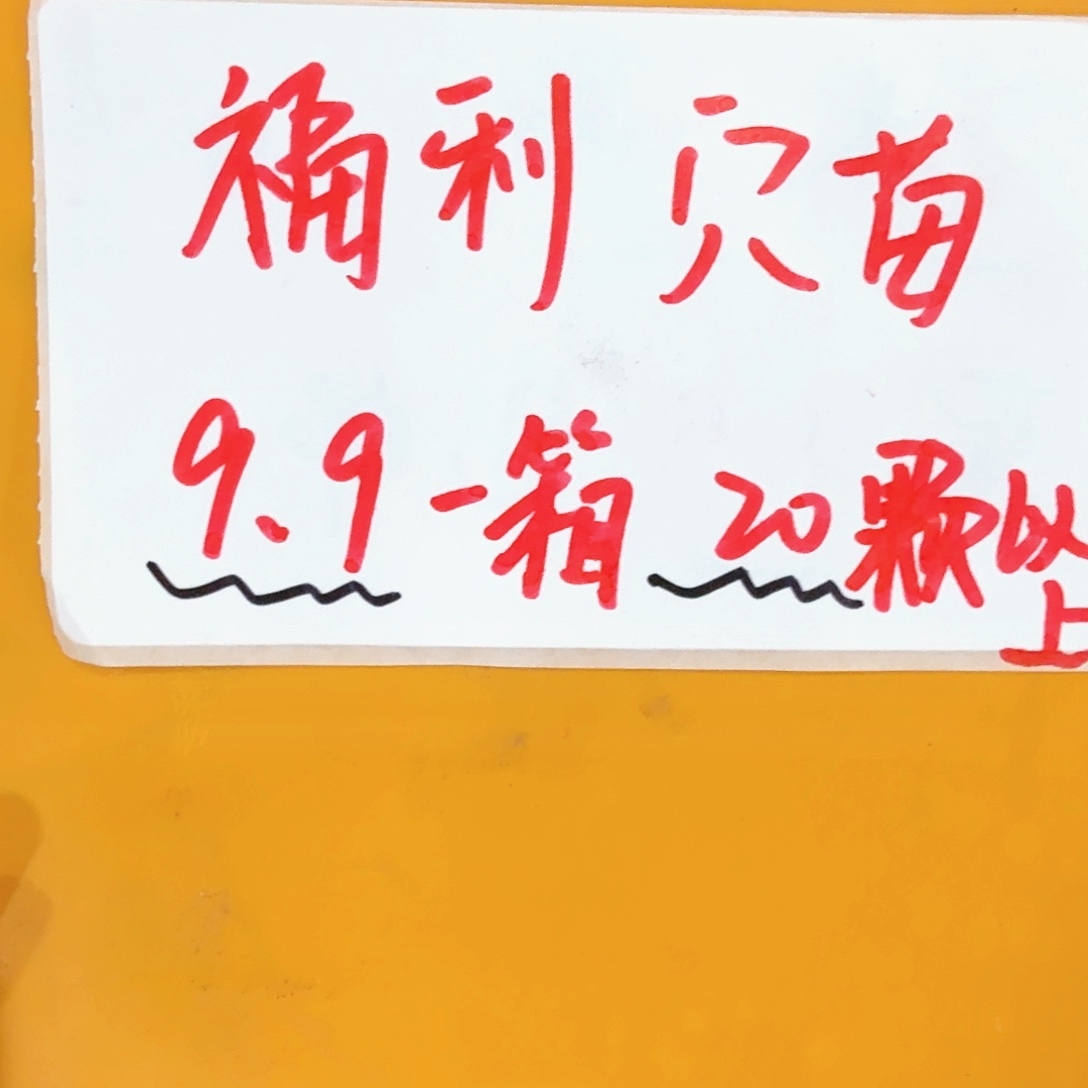 福利穴苗
9.9一箱20颗以
上